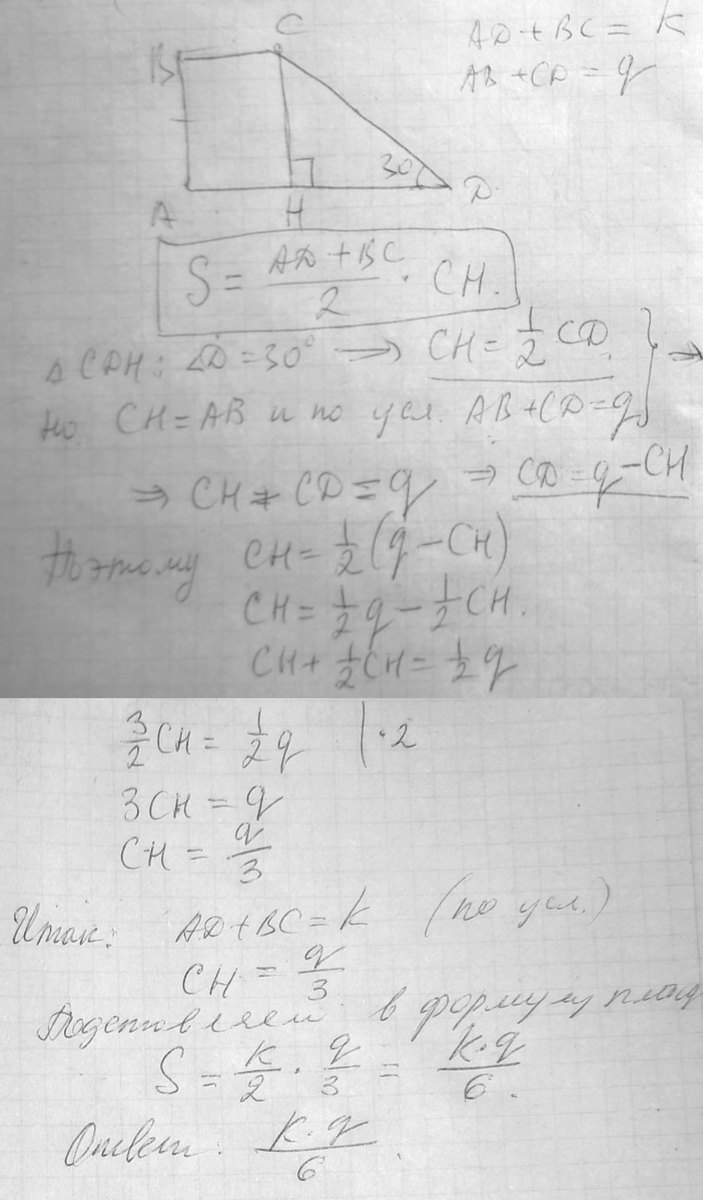 AD + BC = k
AB + CD = q
B C
30
A H D
S = \frac{AD + BC}{2} · CH.
Δ CDH: ∠D = 30° → CH = \frac{1}{2} CD. } ⇒
но CH = AB и по усл. AB + CD = q
⇒ CH + CD = q ⇒ CD = q − CH
Поэтому CH = \frac{1}{2} (q − CH)
CH = \frac{1}{2} q − \frac{1}{2} CH.
CH + \frac{1}{2} CH = \frac{1}{2} q
\frac{3}{2} CH = \frac{1}{2} q | · 2
3CH = q
CH = \frac{q}{3}
Итак: AD + BC = k (по усл.)
CH = \frac{q}{3}
Подставляем в формулу площ
S = \frac{k}{2} · \frac{q}{3} = \frac{k·q}{6}.
Ответ: \frac{k·q}{6}.